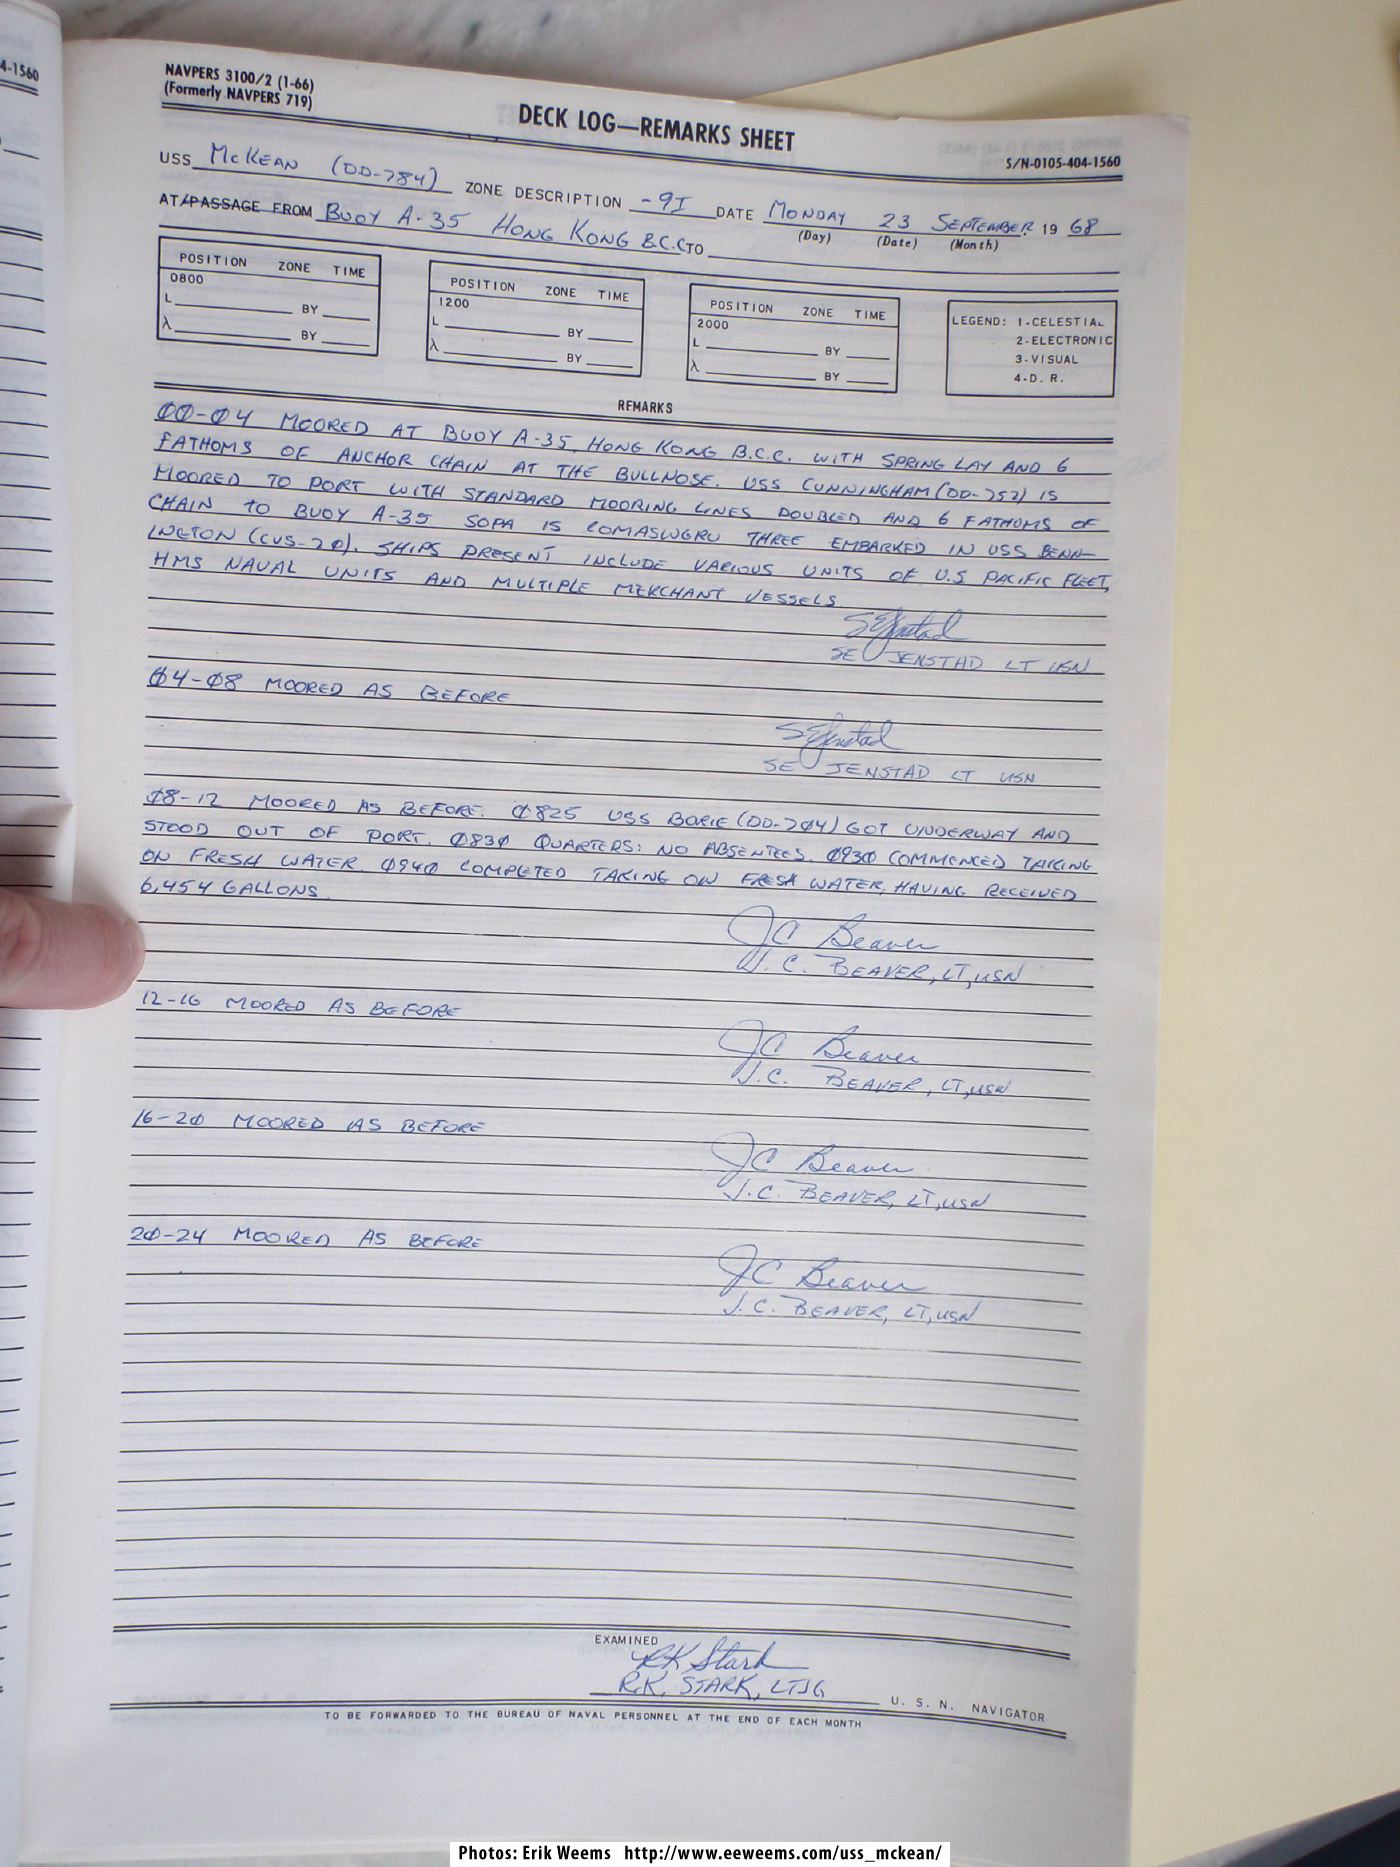 4-1560
NAVPERS 3100/2 (1-66)
(Formerly NAVPERS 719)
DECK LOG—REMARKS SHEET
S/N-0105-404-1560
USS McKEAN (DD-784) ZONE DESCRIPTION -9I DATE MONDAY 23 SEPTEMBER 19 68
(Day) (Date) (Month)
AT/PASSAGE FROM BUOY A-35 HONG KONG B.C.C TO
POSITION ZONE TIME
0800
L BY
λ BY
POSITION ZONE TIME
1200
L BY
λ BY
POSITION ZONE TIME
2000
L BY
λ BY
LEGEND: 1-CELESTIAL
2-ELECTRONIC
3-VISUAL
4-D. R.
REMARKS
00-04 MOORED AT BUOY A-35, HONG KONG B.C.C. WITH SPRING LAY AND 6
FATHOMS OF ANCHOR CHAIN AT THE BULLNOSE. USS CUNNINGHAM (DD-752) IS
MOORED TO PORT WITH STANDARD MOORING LINES DOUBLED AND 6 FATHOMS OF
CHAIN TO BUOY A-35 SOPA IS COMASWGRU THREE EMBARKED IN USS BENN-
INGTON (CVS-20). SHIPS PRESENT INCLUDE VARIOUS UNITS OF U.S PACIFIC FLEET,
HMS NAVAL UNITS AND MULTIPLE MERCHANT VESSELS
SE Jenstad
SE JENSTAD LT USN
04-08 MOORED AS BEFORE
SE Jenstad
SE JENSTAD LT USN
08-12 MOORED AS BEFORE. 0825 USS BORIE (DD-704) GOT UNDERWAY AND
STOOD OUT OF PORT. 0830 QUARTERS: NO ABSENTEES. 0930 COMMENCED TAKING
ON FRESH WATER. 0940 COMPLETED TAKING ON FRESH WATER, HAVING RECEIVED
6,454 GALLONS.
JC Beaver
J. C. BEAVER, LT, USN
12-16 MOORED AS BEFORE
JC Beaver
J.C. BEAVER, LT, USN
16-20 MOORED AS BEFORE
JC Beaver
J.C. BEAVER, LT, USN
20-24 MOORED AS BEFORE
JC Beaver
J.C. BEAVER, LT, USN
EXAMINED
RK Stark
R.K. STARK, LTJG
U. S. N. NAVIGATOR
TO BE FORWARDED TO THE BUREAU OF NAVAL PERSONNEL AT THE END OF EACH MONTH
Photos: Erik Weems http://www.eeweems.com/uss_mckean/